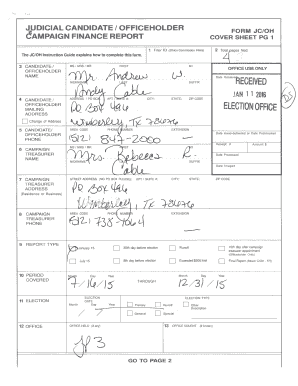 JUDICIAL CANDIDATE / OFFICEHOLDER
CAMPAIGN FINANCE REPORT
FORM JC/OH
COVER SHEET PG 1
The JC/OH Instruction Guide explains how to complete this form.
1 Filer ID (Ethics Commission Filers)
2 Total pages filed:
4
3 CANDIDATE / OFFICEHOLDER NAME
MS / MRS / MR FIRST MI
Mr. Andrew W.
NICKNAME LAST SUFFIX
Andy Cable
OFFICE USE ONLY
Date Received
RECEIVED
JAN 11 2016
ELECTION OFFICE
4 CANDIDATE / OFFICEHOLDER MAILING ADDRESS
Change of Address
ADDRESS / PO BOX; APT / SUITE #; CITY; STATE; ZIP CODE
PO Box 496
Wimberley, TX 78676
5 CANDIDATE/ OFFICEHOLDER PHONE
AREA CODE PHONE NUMBER EXTENSION
(512) 847-2000
Date Hand-delivered or Date Postmarked
Receipt # Amount $
6 CAMPAIGN TREASURER NAME
MS / MRS / MR FIRST MI
Mrs. Rebecca R.
NICKNAME LAST SUFFIX
Cable
Date Processed
Date Imaged
7 CAMPAIGN TREASURER ADDRESS
(Residence or Business)
STREET ADDRESS (NO PO BOX PLEASE); APT / SUITE #; CITY; STATE; ZIP CODE
PO Box 496
Wimberley, TX 78676
8 CAMPAIGN TREASURER PHONE
AREA CODE PHONE NUMBER EXTENSION
(512) 738-7064
9 REPORT TYPE
January 15
30th day before election
Runoff
15th day after campaign treasurer appointment
(Officeholder Only)
July 15
8th day before election
Exceeded $500 limit
Final Report (Attach C/OH - FR)
10 PERIOD COVERED
Month Day Year
7/16/15
THROUGH
Month Day Year
12/31/15
11 ELECTION
ELECTION DATE
Month Day Year
ELECTION TYPE
Primary
Runoff
Other
Description
General
Special
12 OFFICE
OFFICE HELD (if any)
JP3
13 OFFICE SOUGHT (if known)
GO TO PAGE 2